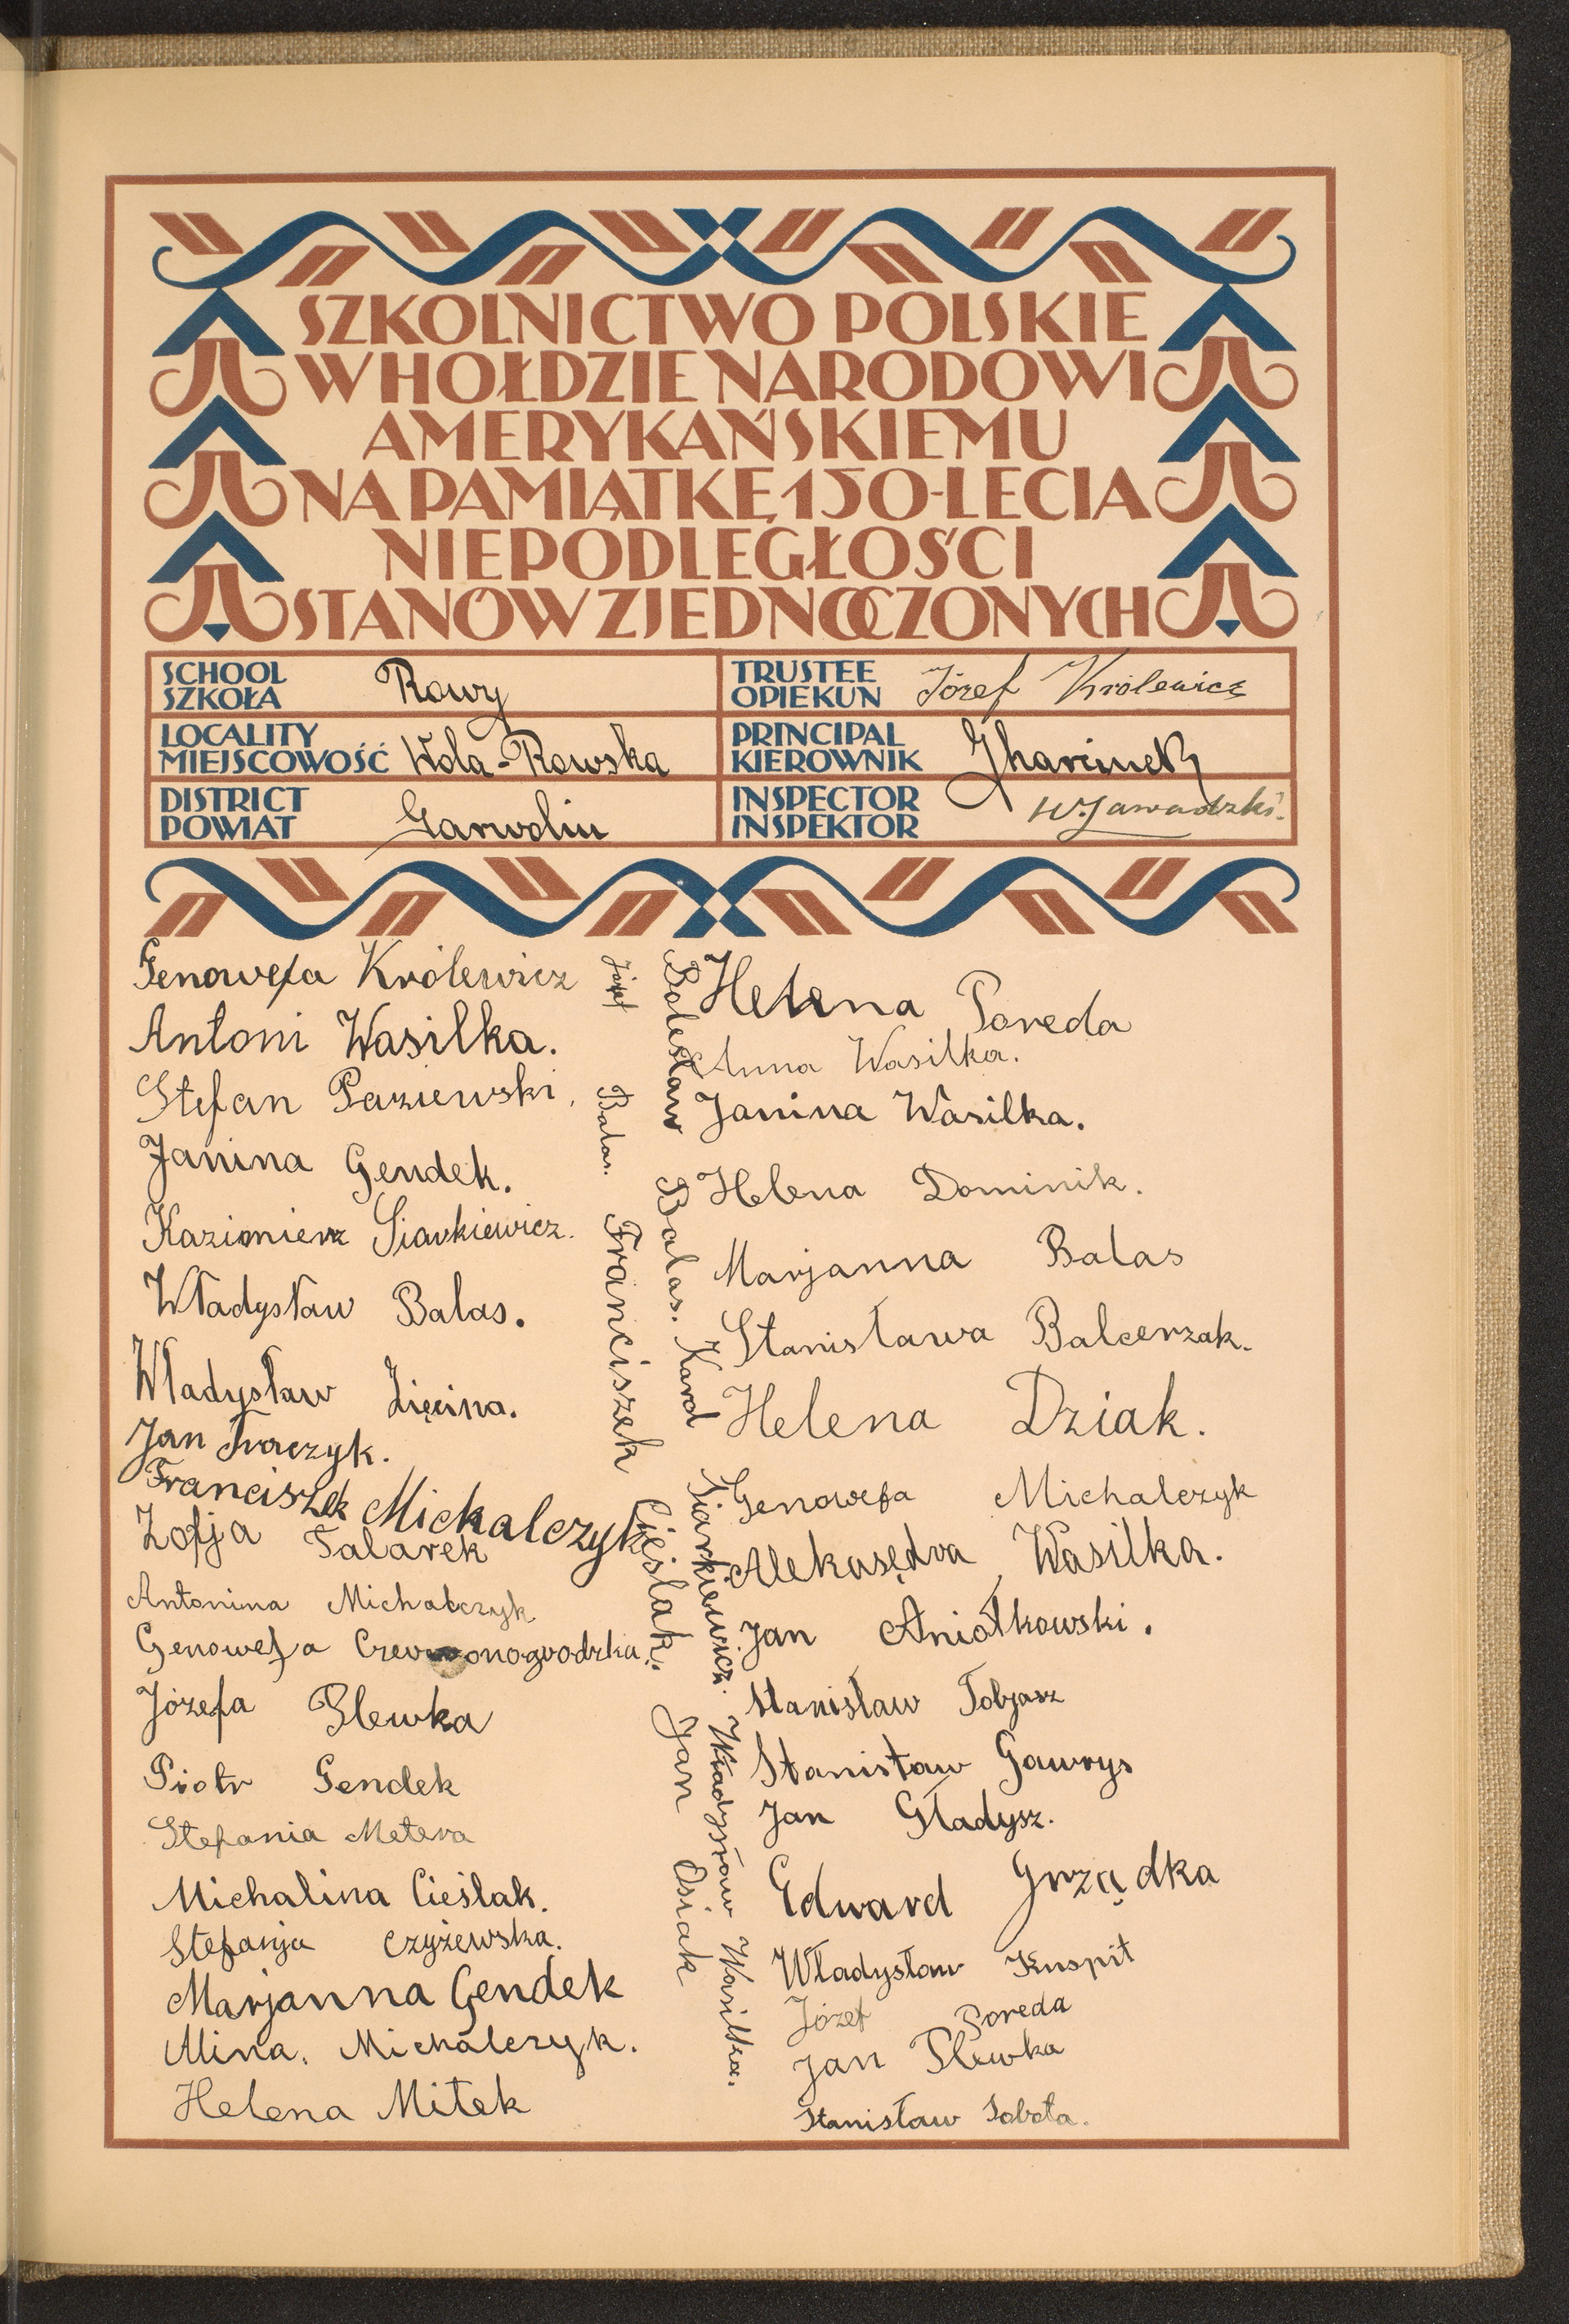 SZKOLNICTWO POLSKIE
W HOŁDZIE NARODOWI
AMERYKAŃSKIEMU
NA PAMIĄTKĘ 150-LECIA
NIEPODLEGŁOŚCI
STANÓW ZJEDNOCZONYCH
SCHOOL
SZKOŁA
Rowy
TRUSTEE
OPIEKUN
Józef Królewicz
LOCALITY
MIEJSCOWOŚĆ
Wola-Rowska
PRINCIPAL
KIEROWNIK
DISTRICT
POWIAT
Garwolin
INSPECTOR
INSPEKTOR
W. Zawadzki.
Genowefa Królewicz
Antoni Wasilka.
Stefan Paziewski.
Janina Gendek.
Kazimierz Siarkiewicz.
Władysław Balas.
Władysław Zięcina.
Jan Traczyk.
Franciszek Michalczyk
Zofja Talarek
Antonina Michalczyk
Genowefa Czerwonogrodzka.
Józefa Plewka
Piotr Gendek
Stefania Metera
Michalina Cieślak.
Stefanja Czyżewska.
Marjanna Gendek
Alina. Michalczyk.
Helena Mitek
Józef Balas.
Franciszek Cieślak.
Jan Osiak
Bolesław Balas.
Karol Siarkiewicz.
Władysław Wasilka.
Helena Poreda
Anna Wasilka.
Janina Wasilka.
Helena Dominik.
Marjanna Balas
Stanisława Balcerzak.
Helena Dziak.
Genowefa Michalczyk
Aleksędra Wasilka.
Jan Aniołkowski.
Stanisław Tobjasz
Stanisław Gawrys
Jan Gładysz.
Edward Grządka
Władysław Kuspit
Józef Poreda
Jan Plewka
Stanisław Sobota.